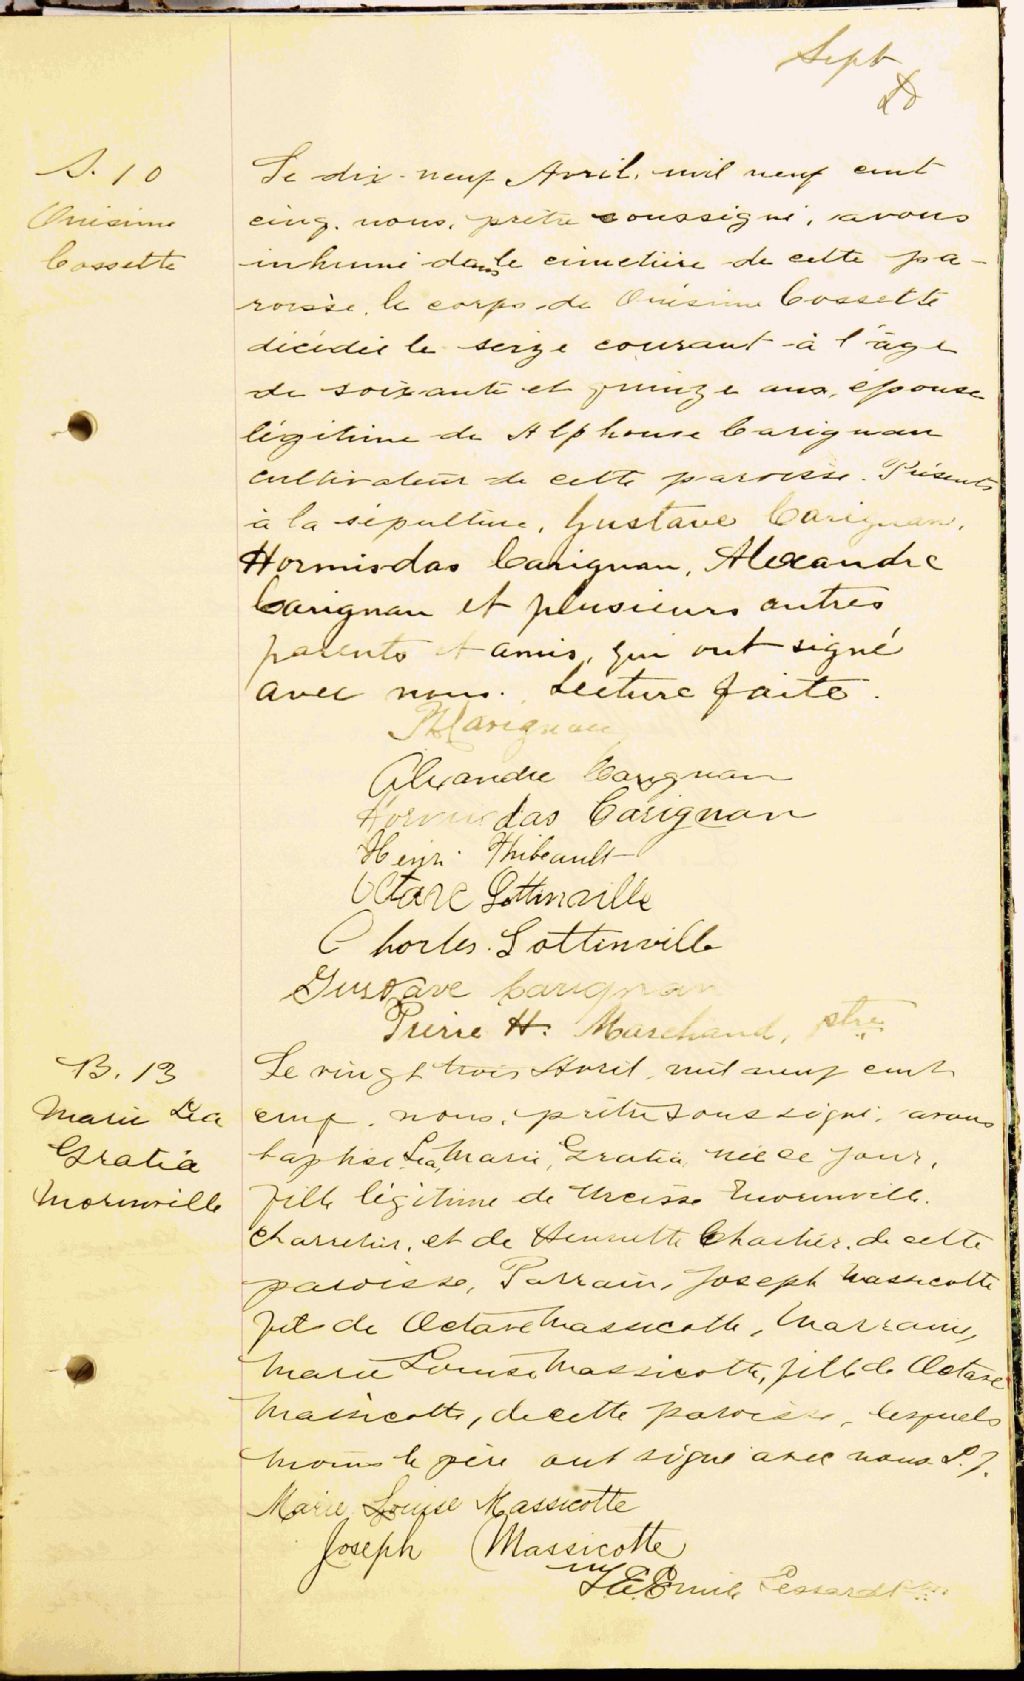 Sept
S. 10
Onésime
Cossette
Le dix-neuf Avril, mil neuf cent
cinq, nous, prêtre soussigné, avons
inhumé dans le cimetière de cette pa-
roisse, le corps de Onésime Cossette
décédée le seize courant à l'âge
de soixante et quinze ans, épouse
légitime de Alphonse Carignan
cultivateur de cette paroisse. Présents
à la sépulture, Gustave Carignan,
Hormisdas Carignan, Alexandre
Carignan et plusieurs autres
parents et amis, qui ont signé
avec nous. Lecture faite.
Carignan
Alexandre Carignan
Hormisdas Carignan
Henri Thibeault
Octave Lottinville
Charles Lottinville
Gustave Carignan
Pierre H. Marchand, ptre
B. 13
Marie Léa
Gratia
Morinville
Le vingt trois Avril, mil neuf cent
cinq, nous, prêtre soussigné, avons
baptisé Léa, Marie, Gratia, née ce jour,
fille légitime de Narcisse Morinville,
charretier, et de Henriette Chartier, de cette
paroisse, Parrain, Joseph Massicotte
fils de Octave Massicotte, Marraine,
Marie Louise Massicotte, fille de Octave
Massicotte, de cette paroisse, lesquels
moins le père ont signé avec nous L. f.
Marie Louise Massicotte
Joseph Massicotte
Emile Lessard